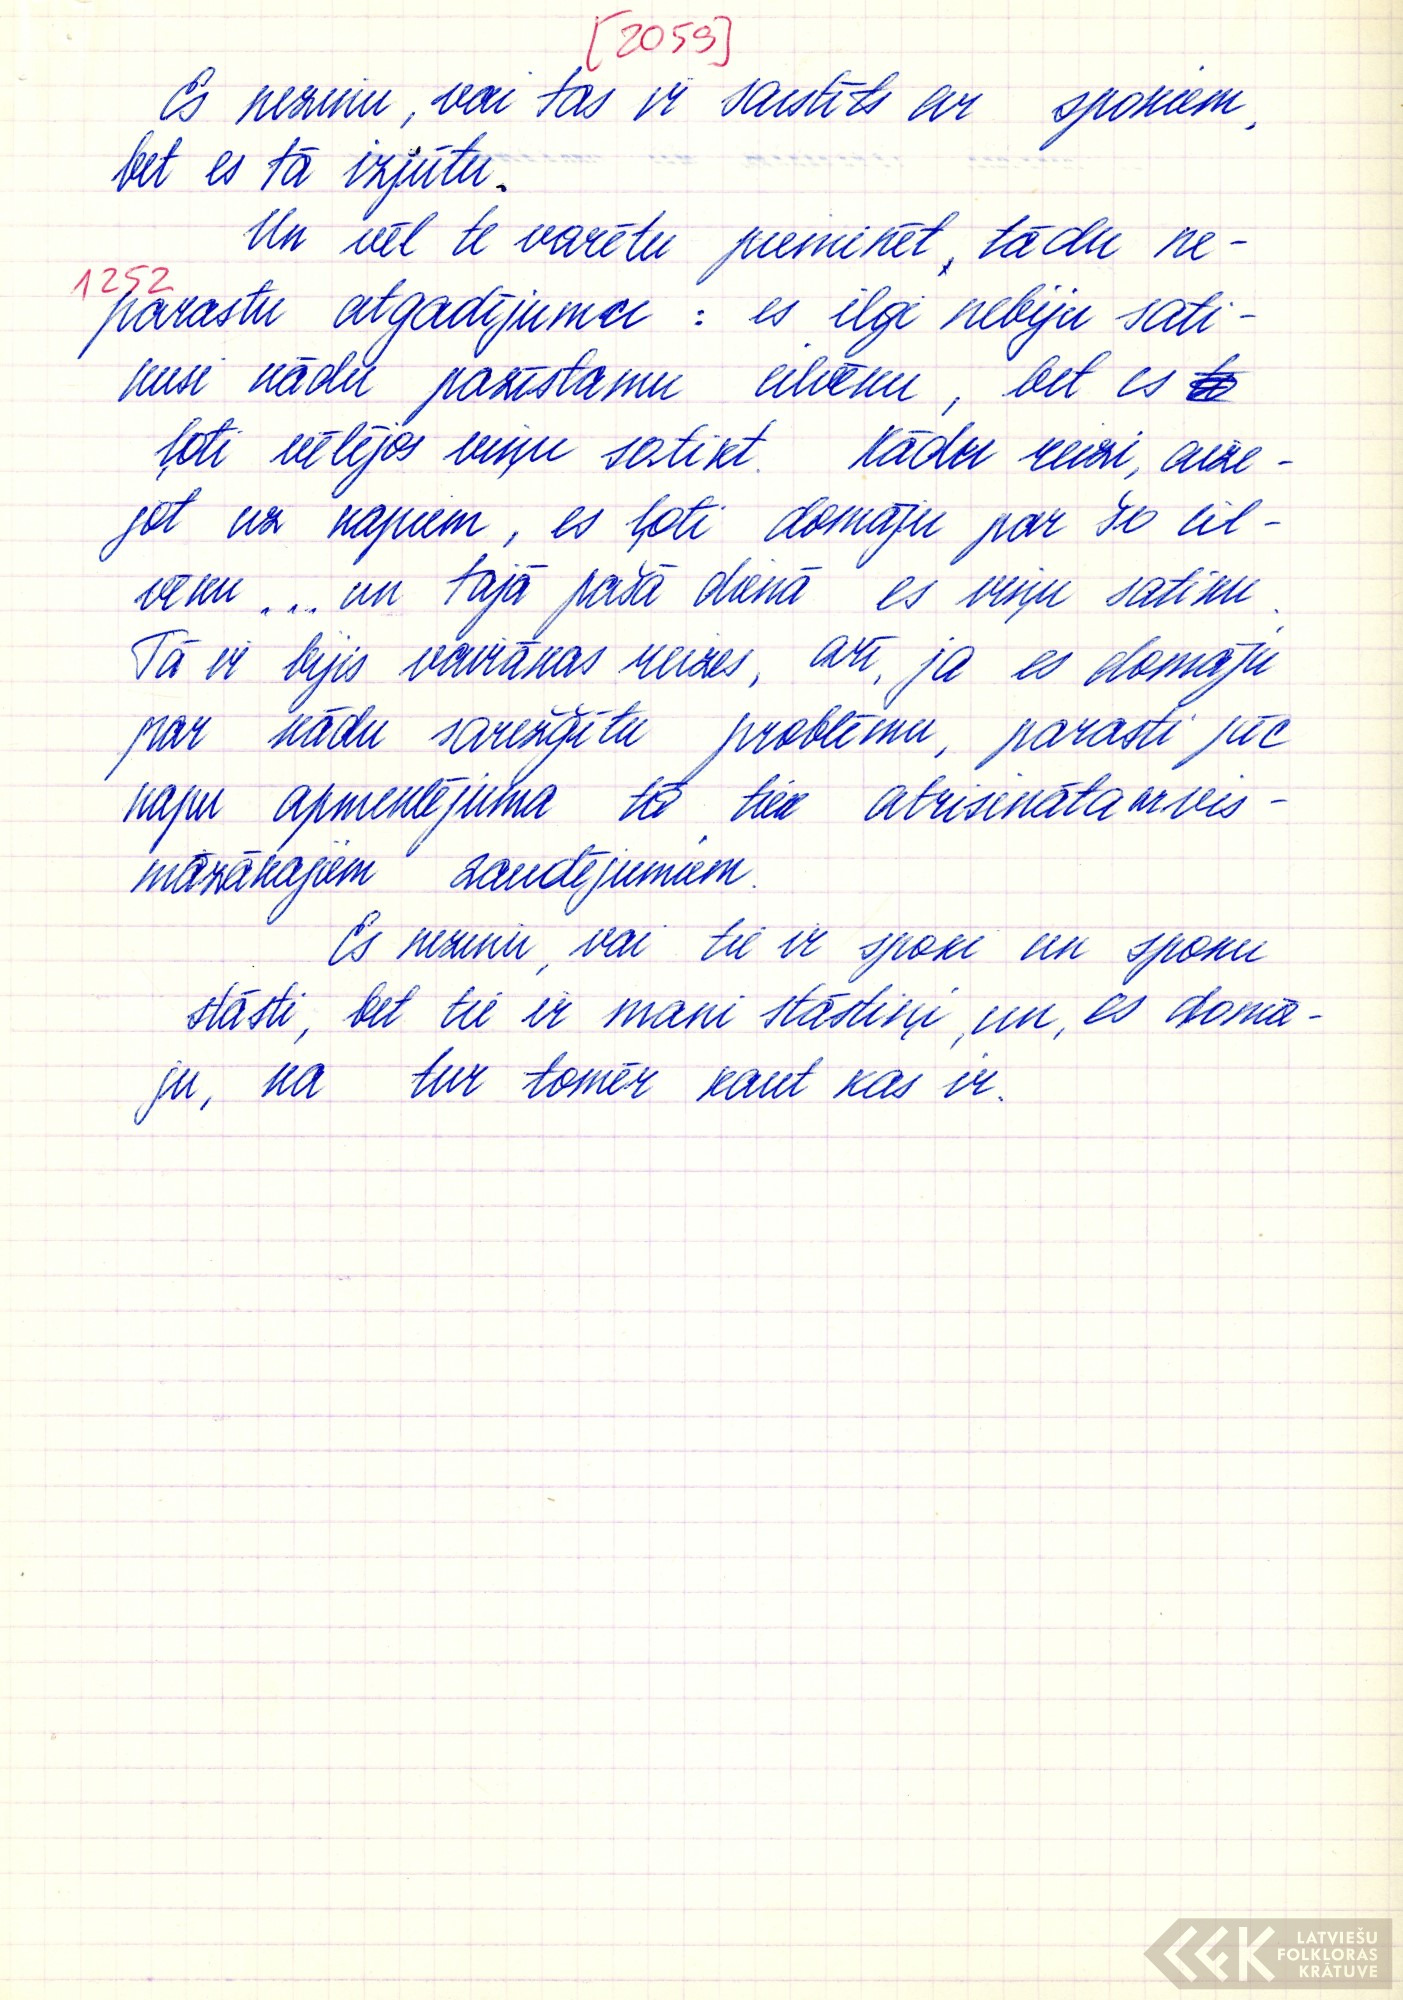 [2059]
Es nezinu, vai tas ir saistīts ar spokiem,
bet es tā izjūtu.
Un vēl te varētu pieminēt, tādu ne-
1252
parastu atgadījumu : es ilgi nebiju sati-
kusi kādu pazīstamu cilvēku, bet es
ļoti vēlējos viņu satikt. Kādu reizi, aize-
jot uz kapiem, es ļoti domāju par šo cil-
vēku ... un tajā pašā dienā es viņu satiku.
Tā ir bijis vairākas reizes, arī, ja es domāju
par kādu sarežģītu problēmu, parasti pēc
kapu apmeklējuma tā tiek atrisināta ar vis-
mazākajiem zaudējumiem.
Es nezinu, vai tie ir spoki un spoku
stāsti, bet tie ir mani stāstiņi, un, es domā-
ju, ka tur tomēr kaut kas ir.
LATVIEŠU
FOLKLORAS
KRĀTUVE